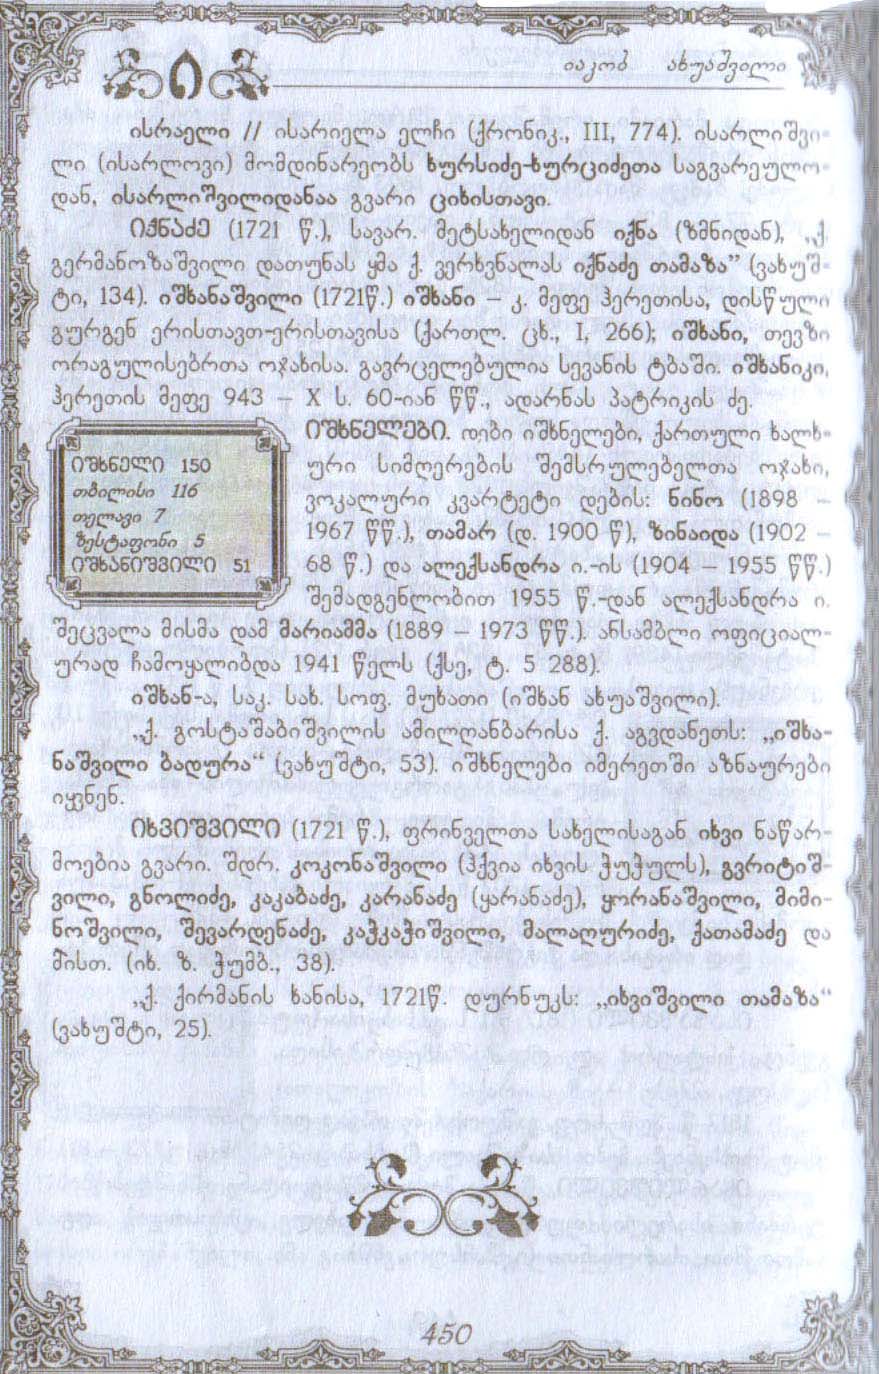 ი
იაკობ ახუაშვილი
ისრაელი // ისარიელა ელჩი (ქრონიკ., III, 774). ისარლიშვი-
ლი (ისარლოვი) მომდინარეობს ხურსიძე-ხურციძეთა საგვარეულო-
დან, ისარლიშვილიდანაა გვარი ციხისთავი.
იქნაძე (1721 წ.), სავარ. მეტსახელიდან იქნა (ზმნიდან), „ქ.
გერმანოზაშვილი დათუნას ყმა ქ. ვერხვნალას იქნაძე თამაზა” (ვახუშ-
ტი, 134). იშხანაშვილი (1721წ.) იშხანი – კ. მეფე ჰერეთისა, დისწული
გურგენ ერისთავთ-ერისთავისა (ქართლ. ცხ., I, 266); იშხანი, თევზი
ორაგულისებრთა ოჯახისა. გავრცელებულია სევანის ტბაში. იშხანიკი,
ჰერეთის მეფე 943 – X ს. 60-იან წწ., ადარნას პატრიკის ძე.
იშხნელები. დები იშხნელები, ქართული ხალხ-
ური სიმღერების შემსრულებელთა ოჯახი,
ვოკალური კვარტეტი დების: ნინო (1898 –
1967 წწ.), თამარ (დ. 1900 წ), ზინაიდა (1902 –
68 წ.) და ალექსანდრა ი.-ის (1904 – 1955 წწ.)
შემადგენლობით 1955 წ.-დან ალექსანდრა ი.
შეცვალა მისმა დამ მარიამმა (1889 – 1973 წწ.). ანსამბლი ოფიციალ-
ურად ჩამოყალიბდა 1941 წელს (ქსე, ტ. 5 288).
იშხნელი 150
თბილისი 116
თელავი 7
ზესტაფონი 5
იშხანიშვილი 51
იშხან-ა, საკ. სახ. სოფ. მუხათი (იშხან ახუაშვილი).
„ქ. გოსტაშაბიშვილის ამილღანბარისა ქ. აგვდანეთს: „იშხა-
ნაშვილი ბადურა“ (ვახუშტი, 53). იშხნელები იმერეთში აზნაურები
იყვნენ.
იხვიშვილი (1721 წ.), ფრინველთა სახელისაგან იხვი ნაწარ-
მოებია გვარი. შდრ. კოკონაშვილი (ჰქვია იხვის ჭუჭულს), გვრიტიშ-
ვილი, გნოლიძე, კაკაბაძე, კარანაძე (ყარანაძე), ყორანაშვილი, მიმი-
ნოშვილი, შევარდენაძე, კაჭკაჭიშვილი, მალაღურიძე, ქათამაძე და
მისთ. (იხ. ზ. ჭუმბ., 38).
„ქ. ქირმანის ხანისა, 1721წ. დურნუკს: „იხვიშვილი თამაზა“
(ვახუშტი, 25).
450